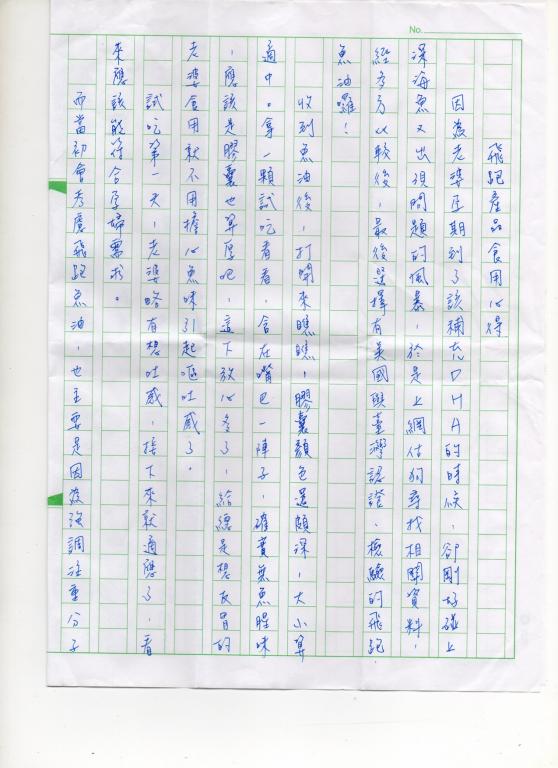 No.
飛跑產品食用心得
因為老婆孕期到了該補充DHA的時候,卻剛好碰上
深海魚又出現問題的風暴,於是上網估狗尋找相關資料,
經多方比較後,最後選擇有美國與臺灣認證、檢驗的飛跑
魚油囉!
收到魚油後,打開來瞧瞧,膠囊顏色還頗深,大小算
適中。拿一顆試吃看看,含在嘴巴一陣子,確實無魚腥味
,應該是膠囊也算厚吧,這下放心多了,給總是想反胃的
老婆食用就不用擔心魚味引起嘔吐感了。
試吃第一天,老婆略有想吐感,接下來就適應了,看
來應該能符合孕婦需求。
而當初會考慮飛跑魚油,也主要是因為強調注重分子